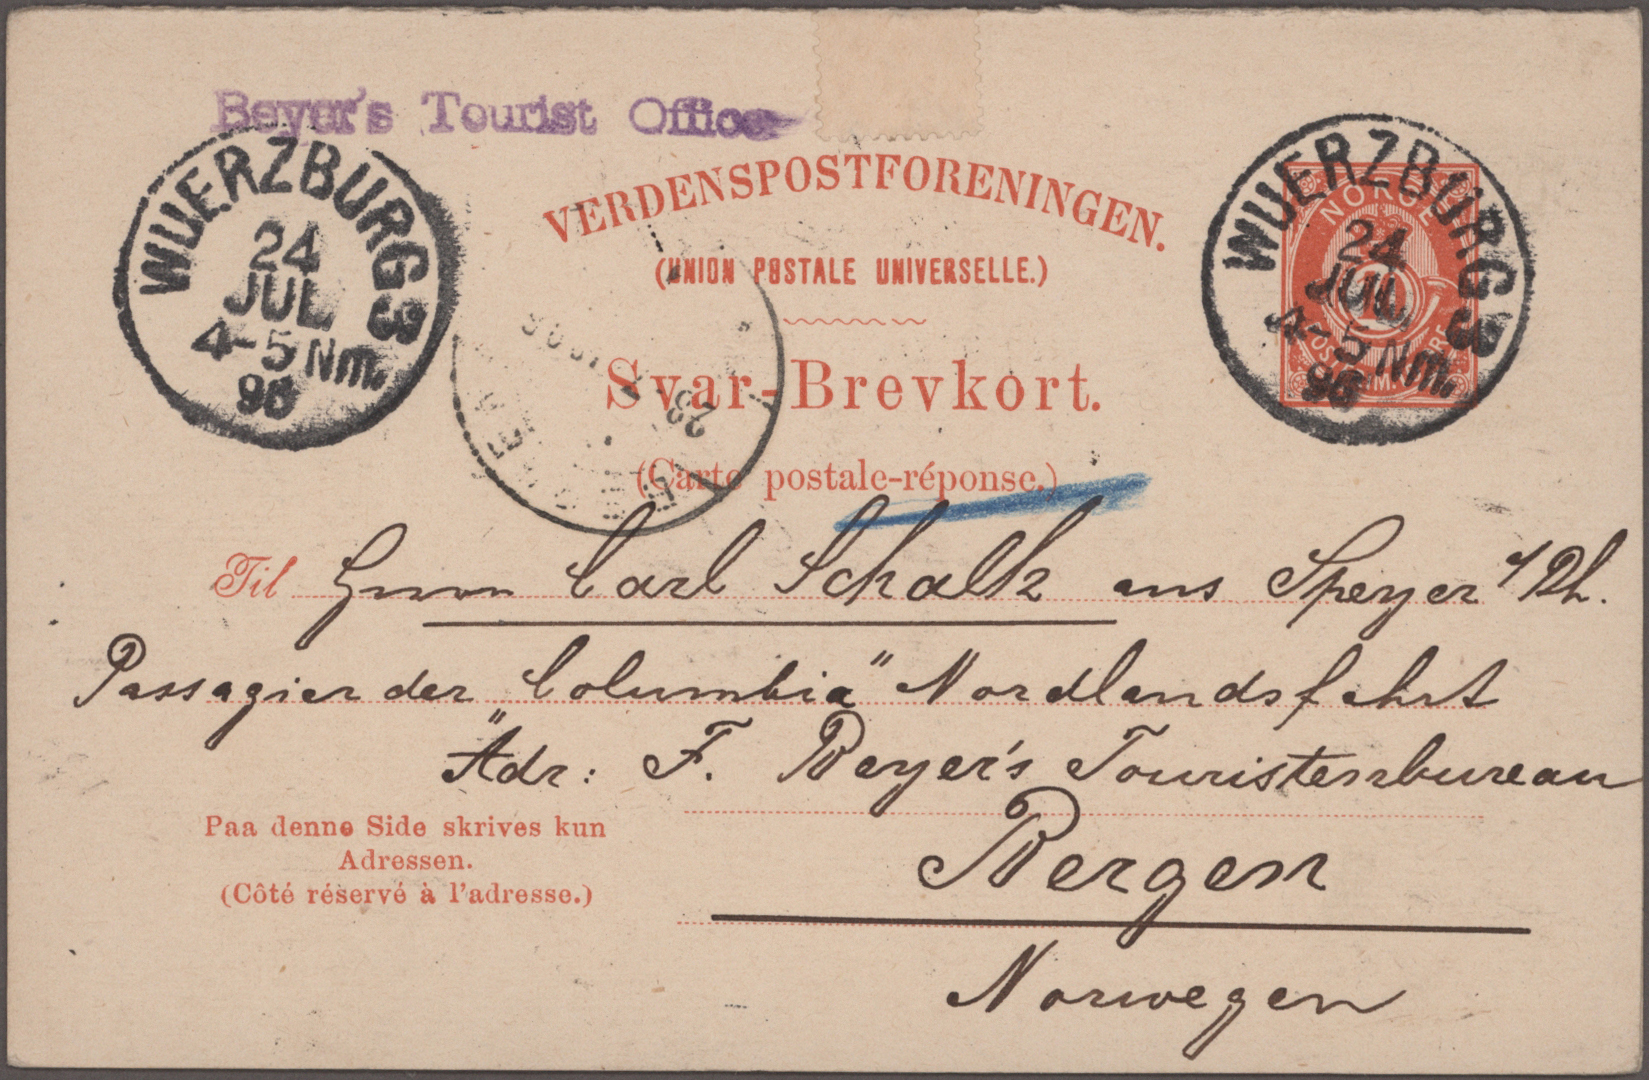 Beyer's Tourist Office
VERDENSPOSTFORENINGEN.
(UNION POSTALE UNIVERSELLE.)
Svar-Brevkort.
(Carte postale-réponse.)
WUERZBURG 3
24
JUL
4-5 Nm.
96
NORGE
10
WUERZBURG 3
24
JUL
4-5 Nm.
96
Til Herrn Carl Schalk aus Speyer a/Rh.
Passagier der "Columbia" Nordlandsfahrt
Adr: F. Beyer's Touristenbureau
Bergen
Norwegen
Paa denne Side skrives kun
Adressen.
(Côté réservé à l'adresse.)